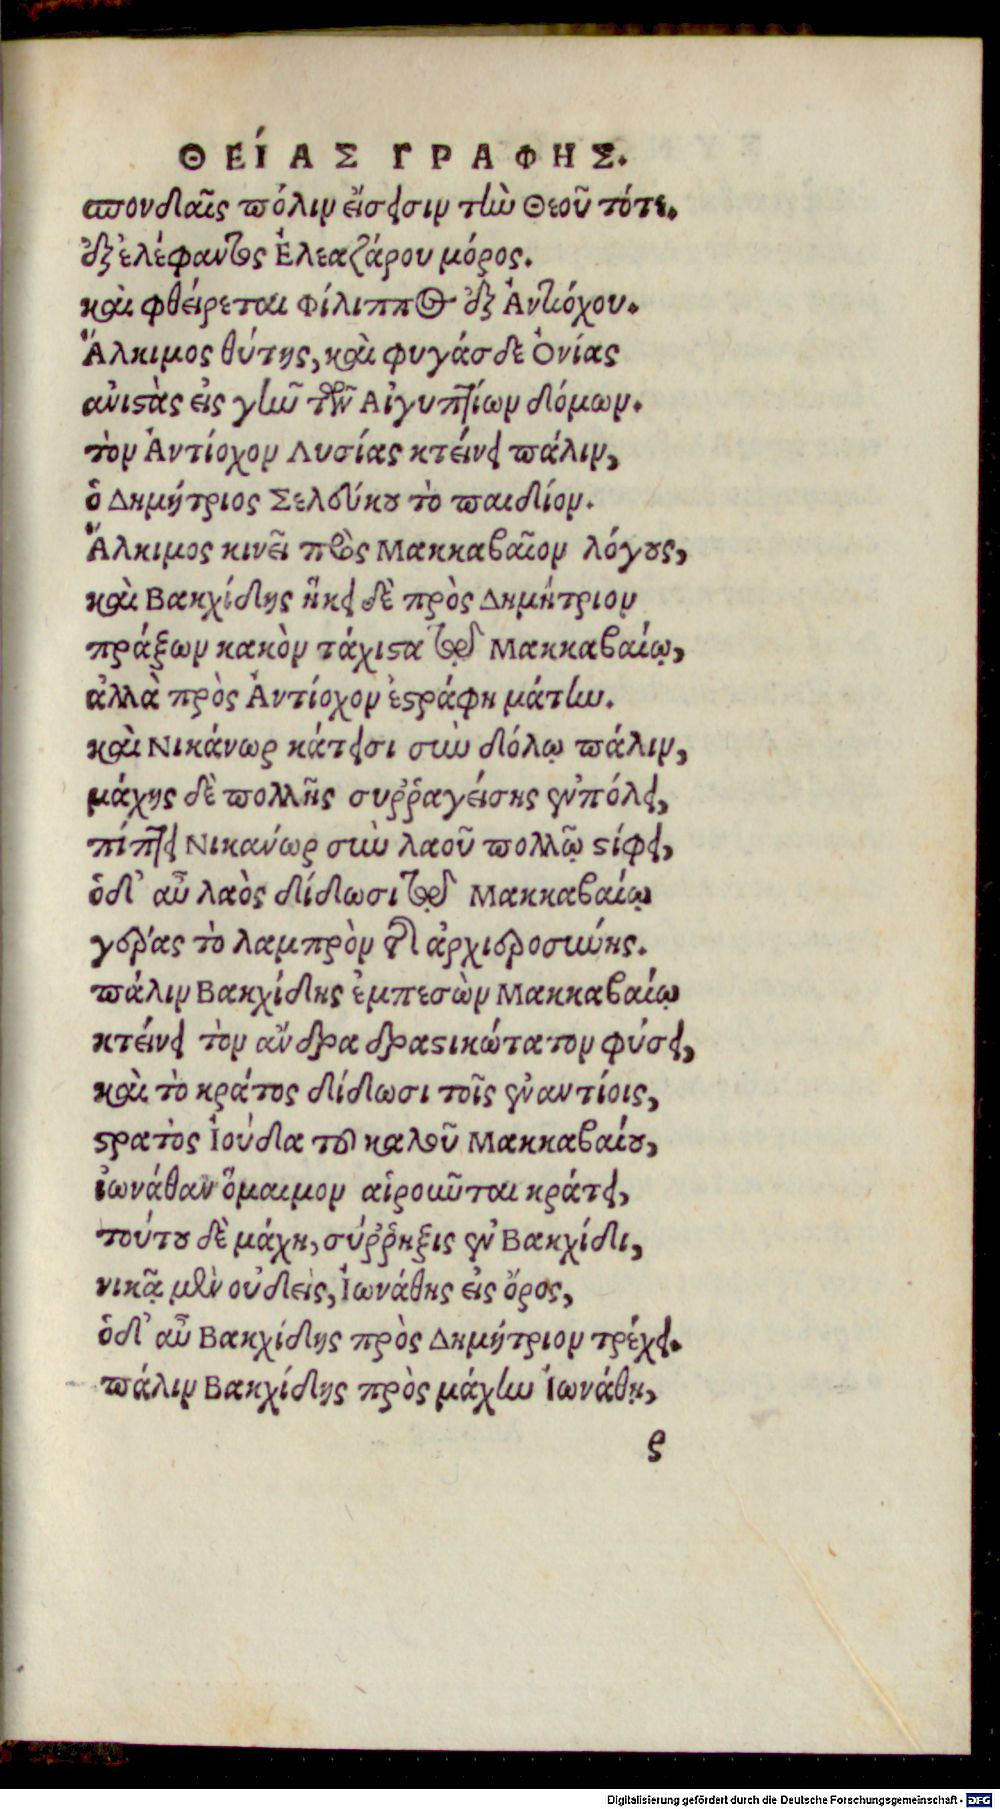 ΘΕΊΑΣ ΓΡΑΦΗΣ.
σπονδαῖς πόλιν εἴσεισιν τὴν Θεοῦ τότε.
ἐξ ἐλέφαντος Ἐλεαζάρου μόρος.
καὶ φθείρεται Φίλιππος ἐξ Ἀντιόχου.
Ἄλκιμος θύτης, καὶ φυγάς δε Ὀνίας
ἀνιστὰς εἰς γῆν τῶν Αἰγυπτίων δόμων.
τὸν Ἀντίοχον Λυσίας κτείνει πάλιν,
ὁ Δημήτριος Σελεύκου τὸ παιδίον.
Ἄλκιμος κινεῖ πρὸς Μακκαβαῖον λόγους,
καὶ Βακχίδης ἥκει δὲ πρὸς Δημήτριον
πράξων κακὸν τάχιστα τῷ Μακκαβαίῳ,
ἀλλὰ πρὸς Ἀντίοχον ἐστράφη μάτην.
καὶ Νικάνωρ κάτεισι σὺν δόλῳ πάλιν,
μάχης δὲ πολλῆς συῤῥαγείσης ἐν πόλει,
πίπτει Νικάνωρ σὺν λαοῦ πολλῷ στίφει,
ὁδ' αὖ λαὸς δίδωσι τῷ Μακκαβαίῳ
γέρας τὸ λαμπρὸν τῆς ἀρχιεροσύνης.
πάλιν Βακχίδης ἐμπεσὼν Μακκαβαίῳ
κτείνει τὸν ἄνδρα δραστικώτατον φύσει,
καὶ τὸ κράτος δίδωσι τοῖς ἐναντίοις,
στρατὸς Ἰούδα τοῦ καλοῦ Μακκαβαίου,
ἰωνάθαν ὅμαιμον αἱροῦνται κράτει,
τούτου δὲ μάχη, σύῤῥηξις ἐν Βακχίδι,
νικᾷ μὲν οὐδεὶς, Ἰωνάθης εἰς ὄρος,
ὁδ' αὖ Βακχίδης πρὸς Δημήτριον τρέχει.
πάλιν Βακχίδης πρὸς μάχην Ἰωνάθῃ,
ς
Digitalisierung gefördert durch die Deutsche Forschungsgemeinschaft - DFG